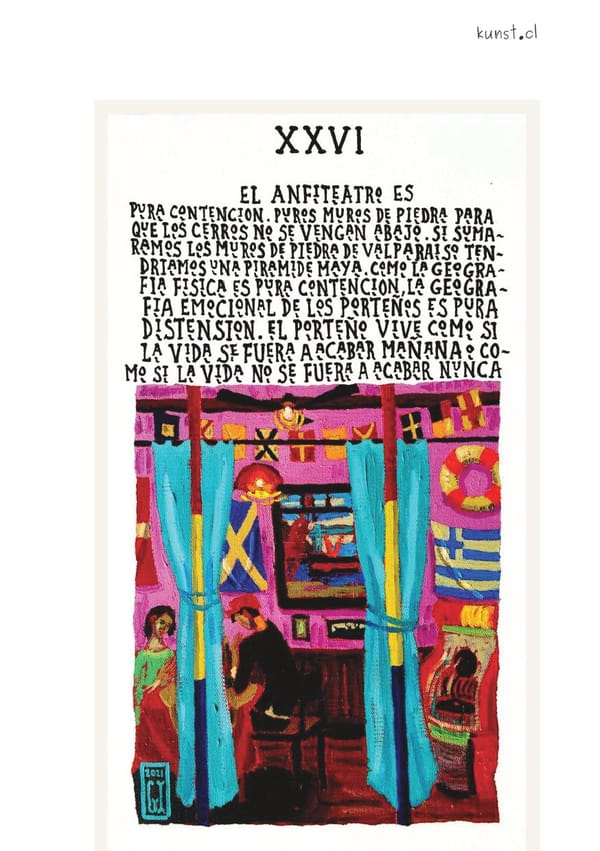 kunst.cl
XXVI
EL ANFITEATRO ES
PURA CONTENCION. PUROS MUROS DE PIEDRA PARA
QUE LOS CERROS NO SE VENGAN ABAJO. SI SUMA~
RAMOS LOS MUROS DE PIEDRA DE VALPARAISO TEN~
DRIAMOS UNA PIRAMIDE MAYA. COMO LA GEOGRA~
FIA FISICA ES PURA CONTENCION, LA GEOGRA~
FIA EMOCIONAL DE LOS PORTEÑOS ES PURA
DISTENSION. EL PORTEÑO VIVE COMO SI
LA VIDA SE FUERA A ACABAR MAÑANA O CO~
MO SI LA VIDA NO SE FUERA A ACABAR NUNCA
2021